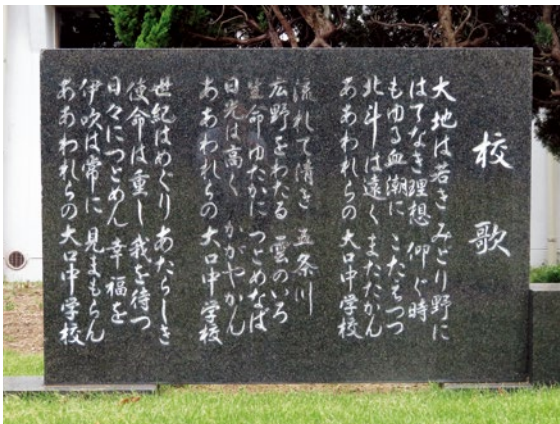 校歌
大地は若き みどり野に
はてなき理想 仰ぐ時
もゆる血潮に こたえつつ
北斗は遠く またたかん
ああわれらの 大口中学校
流れて清き 五条川
広野をわたる 雲のいろ
生命ゆたかに つとめなば
日光は高く かがやかん
ああわれらの 大口中学校
世紀はめぐり あたらしき
使命は重し 我を待つ
日々につとめん 幸福を
伊吹は常に 見まもらん
ああわれらの 大口中学校